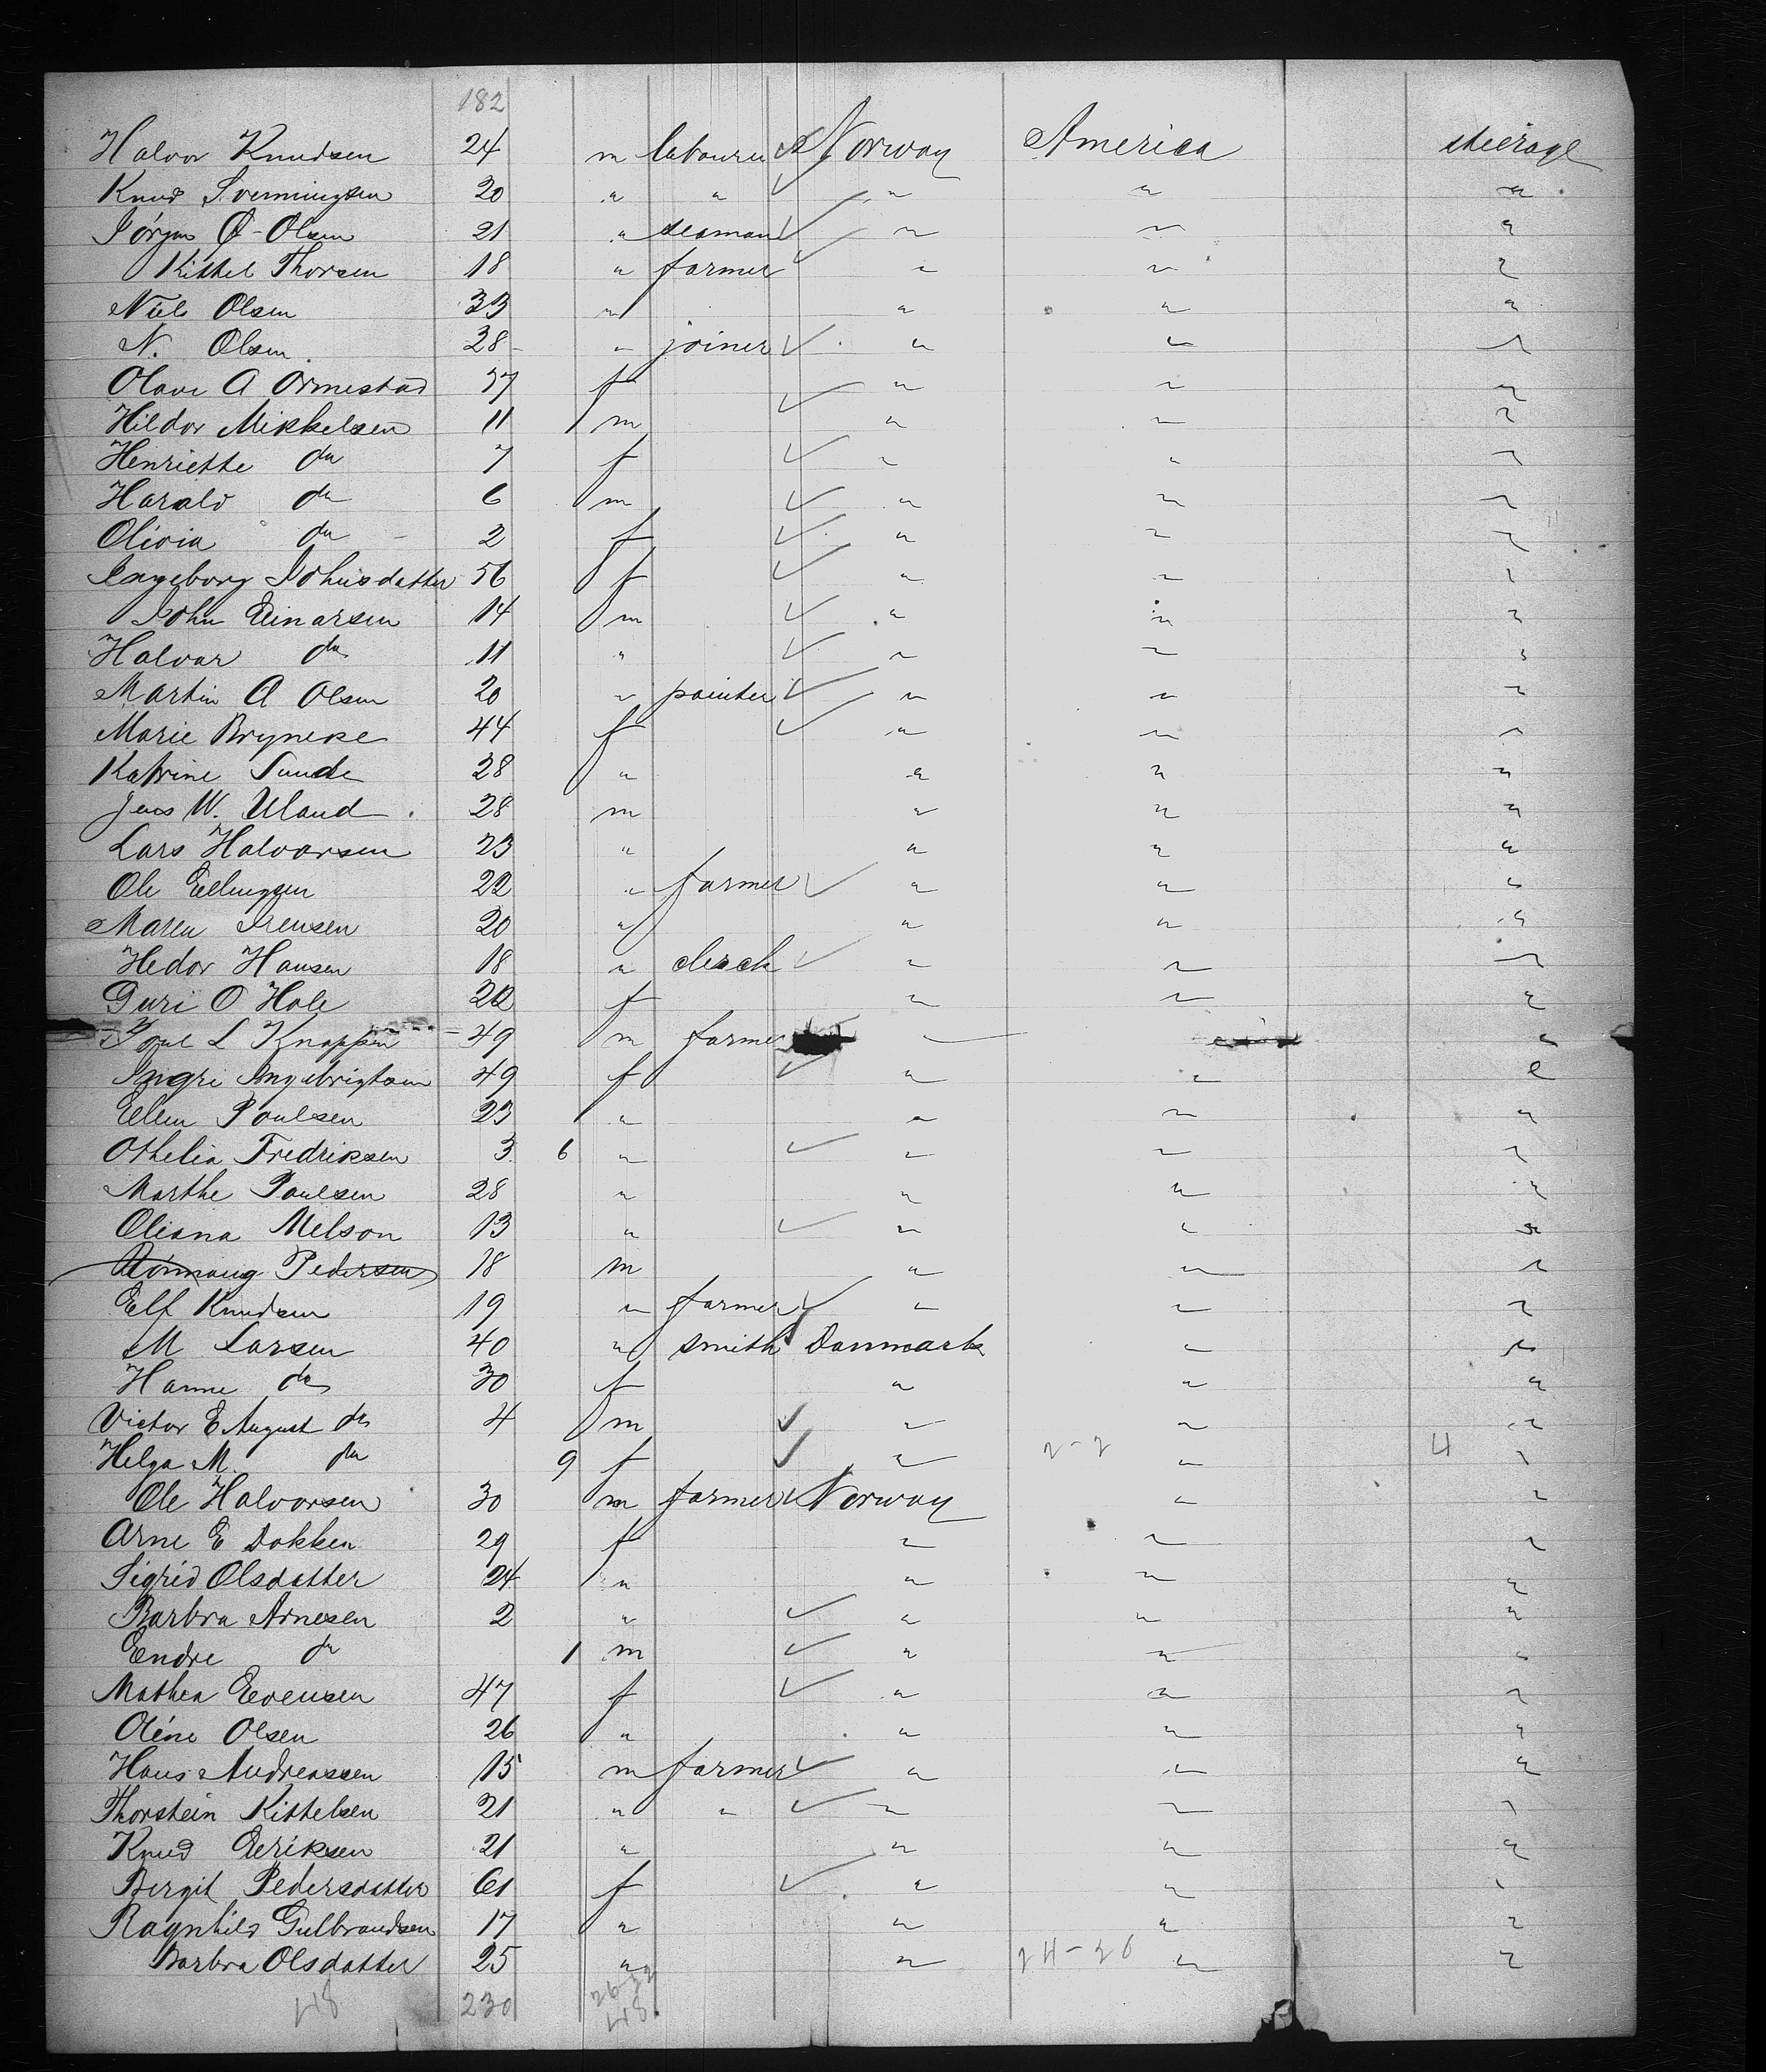 182
Halvor Knudsen 24 m labourer Norway America steerage
Knud Svenningsen 20 " " " " "
Jörgen O. Olsen 21 " seaman " " "
Kittel Thorsen 18 " farmer " " "
Niels Olsen 33 " " " "
N. Olsen 28 " joiner " " "
Olave A Ormestad 37 f " " "
Hildor Mikkelsen 11 m " " "
Henriette do 7 f " " "
Harald do 6 m " " "
Olivia do 2 f " " "
Ingeborg Johnsdatter 56 f " " "
John Einarsen 14 m " " "
Halvar do 11 " " " "
Martin A Olsen 20 " painter " " "
Marie Bryneke 44 f " " "
Katrine Sunde 28 " " " "
Jens W. Uland 28 m " " "
Lars Halvorsen 23 " " " "
Ole Ellingsen 22 " farmer " " "
Maren Jensen 20 " " " "
Hedor Hansen 18 " clerck " " "
Guri O Hole 22 f " " "
Poul L Knappen 49 m farmer " "
Ingri Ingebrigtsen 49 f " " "
Ellen Poulsen 23 " " " "
Othelia Fredriksen 3 6 " " " "
Marthe Poulsen 28 " " " "
Oliana Melson 13 " " " "
Pedersen 18 m " " "
Elf Knudsen 19 " farmer " " "
M Larsen 40 " smith Danmark " "
Hanne do 30 f " " "
Victor E August do 4 m " " "
Helga M. do 9 f " 2-2 " 4 "
Ole Halvorsen 30 m farmer Norway " "
Arne E Dokken 29 f " " "
Sigrid Olsdatter 24 " " " "
Barbra Arnesen 2 " " " "
Endre do 1 m " " "
Mathea Evensen 47 f " " "
Oléne Olsen 26 " " " "
Hans Andreassen 15 m farmer " " "
Thorstein Kittelsen 21 " " " " "
Knud Eriksen 21 " " " "
Bergit Pedersdatter 61 f " " "
Ragnhild Gulbrandsen 17 " " " "
Barbra Olsdatter 25 " " 24-20 " "
48 230 26-22
48.